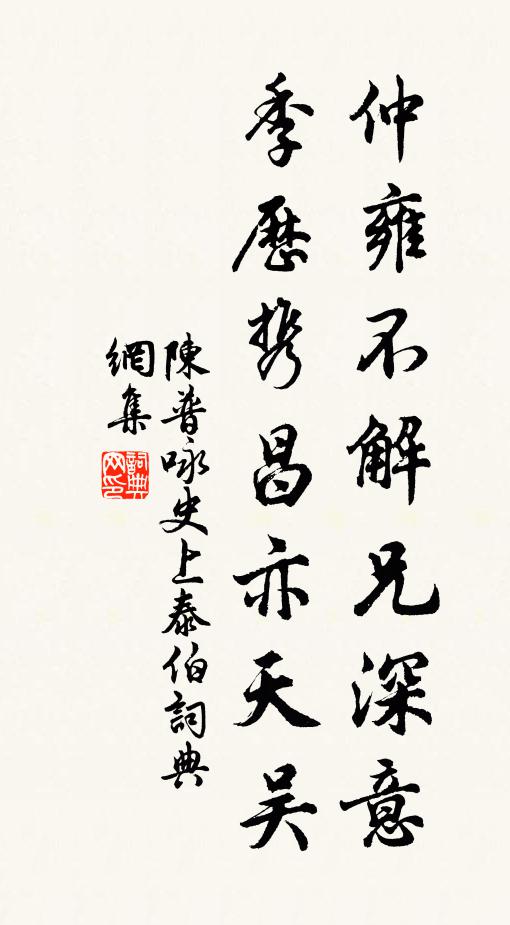 仲雍不解兄深意
季歷携昌亦天吴
陳普咏史上泰伯詞典
網集
詞典網印